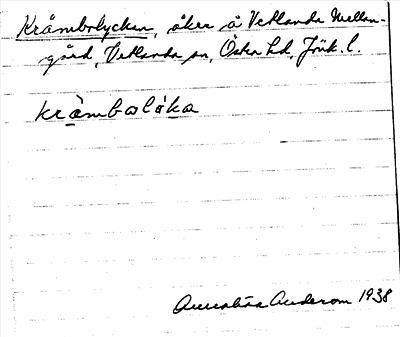 Kråmbolyckan, åker å Vetlanda Mellan-
gård, Vetlanda sn, Östra hd, Jönk. l.
kràmboló̀ka
Annalisa Anderson 1938